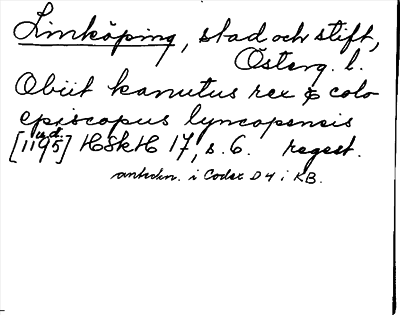 Linköping, stad och stift,
Österg. l.
Obiit kanutus rex & colo
episcopus lyncopensis
u.d.
[1195] HSkH 17, s. 6. regest.
anteckn. i Codex D 4 i KB.